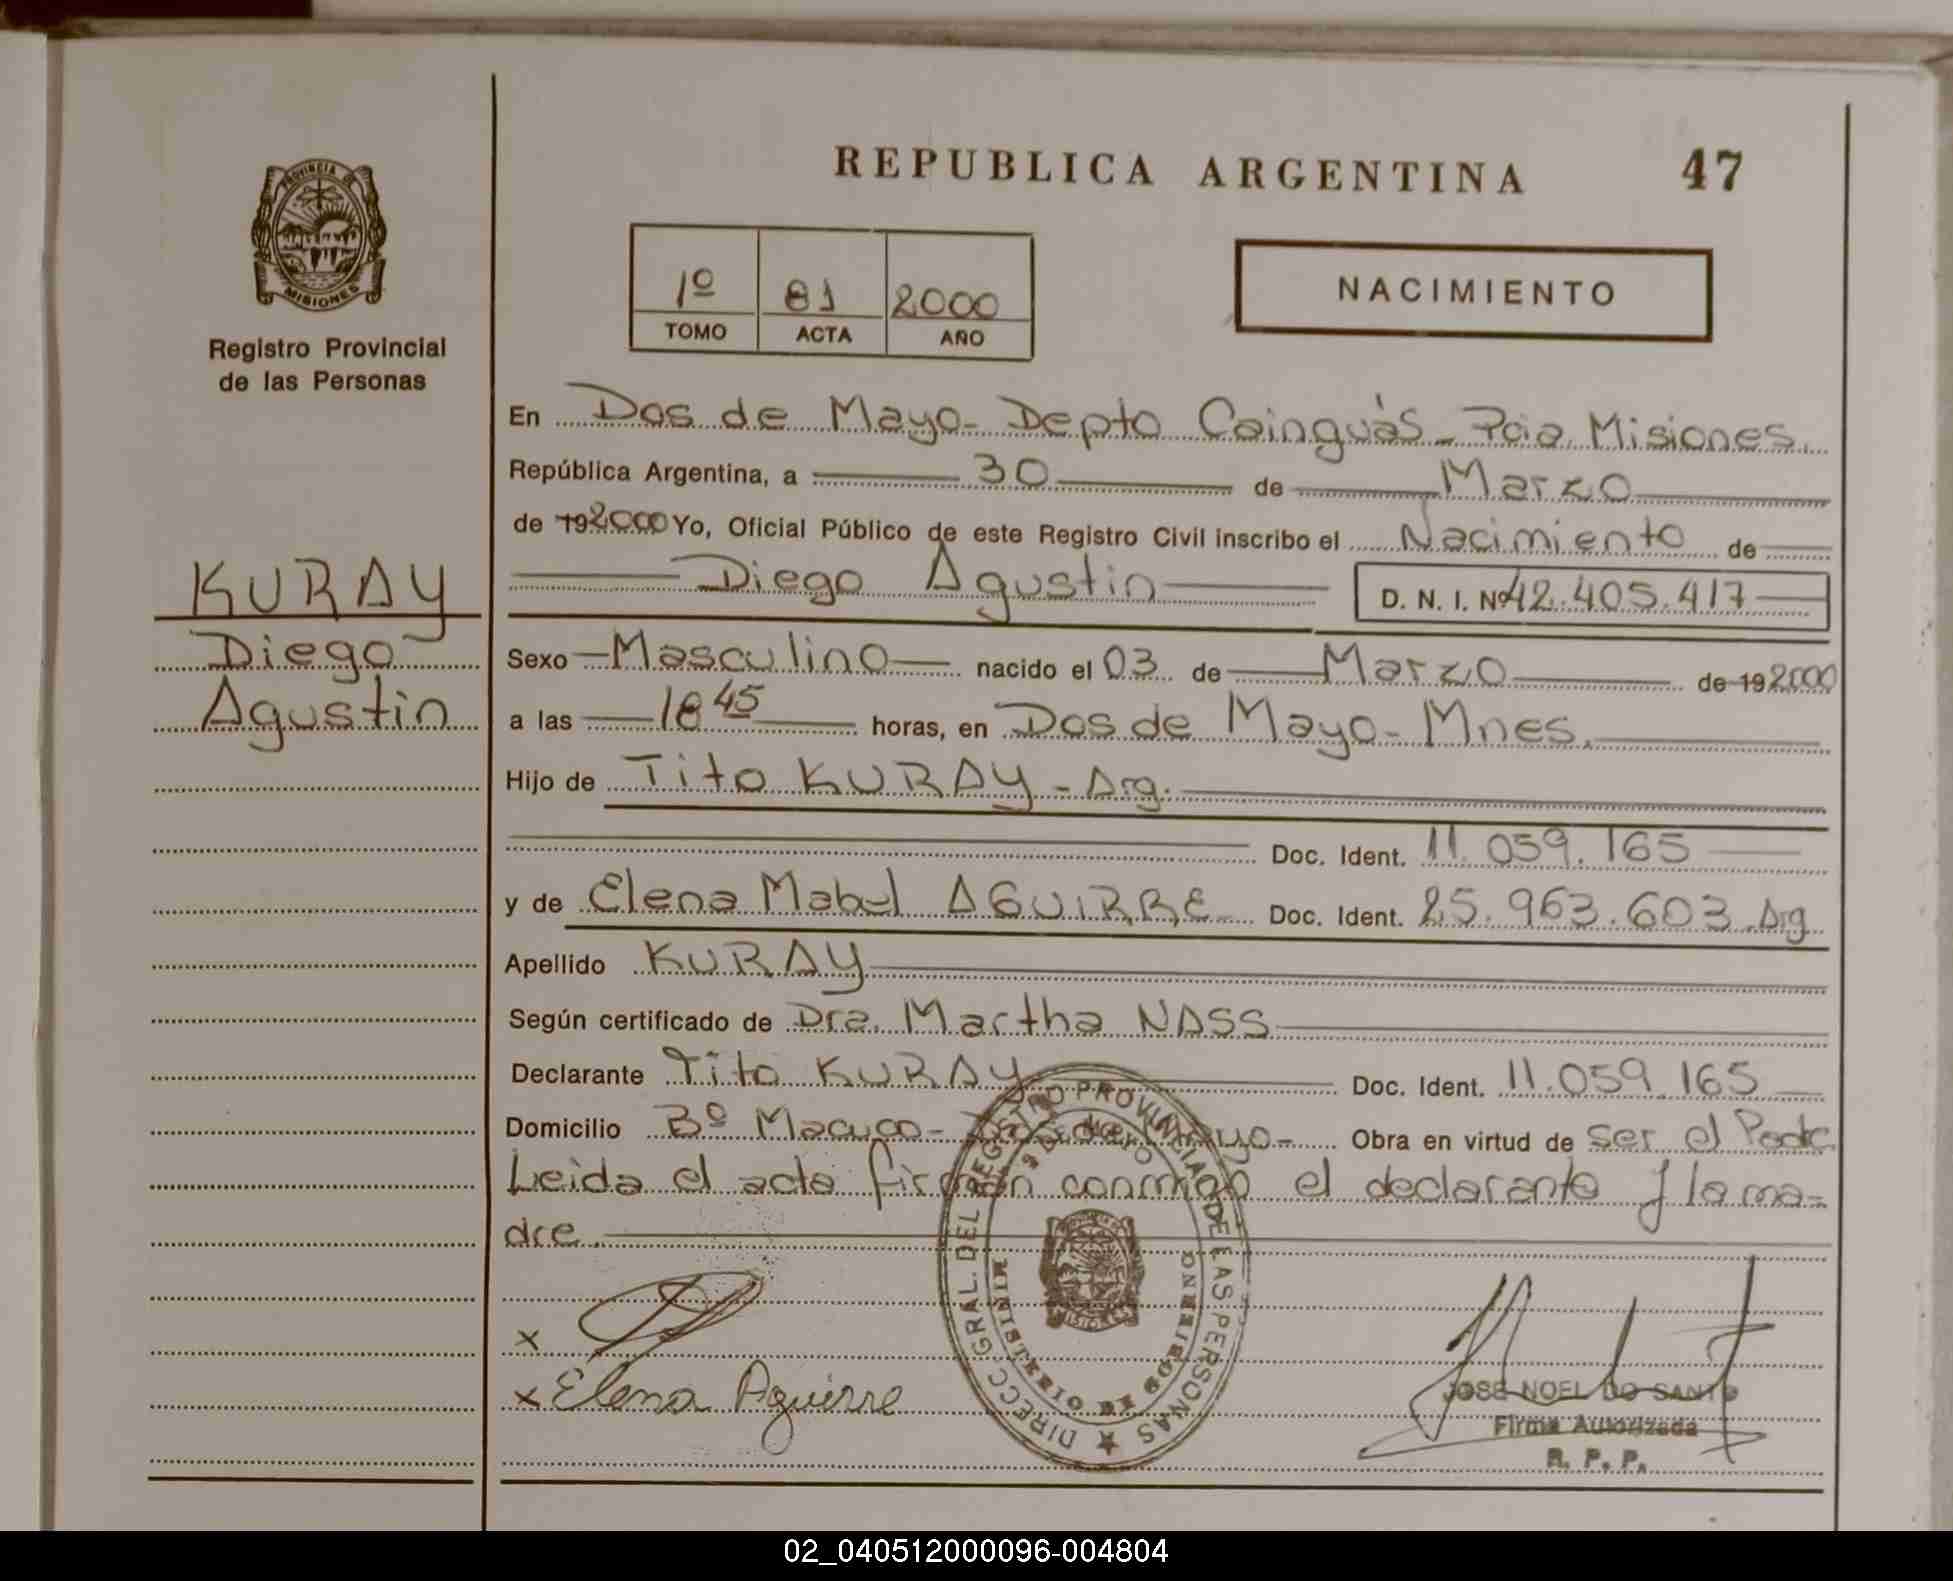 REPUBLICA ARGENTINA 47
PROVINCIA DE MISIONES
Registro Provincial
de las Personas
1º 81 2000
TOMO ACTA AÑO
NACIMIENTO
KURAY
Diego
Agustin
En Dos de Mayo - Depto Cainguás - Pcia Misiones.
República Argentina, a 30 de Marzo
de 192000 Yo, Oficial Público de este Registro Civil inscribo el Nacimiento de
Diego Agustin D. N. I. Nº 42.405.417
Sexo Masculino nacido el 03 de Marzo de 192000
a las 18 45 horas, en Dos de Mayo - Mnes.
Hijo de Tito KURAY - Arg.
Doc. Ident. 11.059.165
y de Elena Mabel AGUIRRE Doc. Ident. 25.963.603 Arg
Apellido KURAY
Según certificado de Dra. Martha NASS
Declarante Tito KURAY Doc. Ident. 11.059.165
Domicilio Bº Macuco - Dos de Mayo - Obra en virtud de ser el Padre
Leida el acta firman conmigo el declarante y la ma-
dre.
DIRECC. GRAL. DEL REGISTRO PROVINCIAL DE LAS PERSONAS
MINISTERIO DE GOBIERNO
MISIONES
x
x Elena Aguirre
JOSE NOEL DO SANTO
Firma Autorizada
R. P. P.
02_040512000096-004804